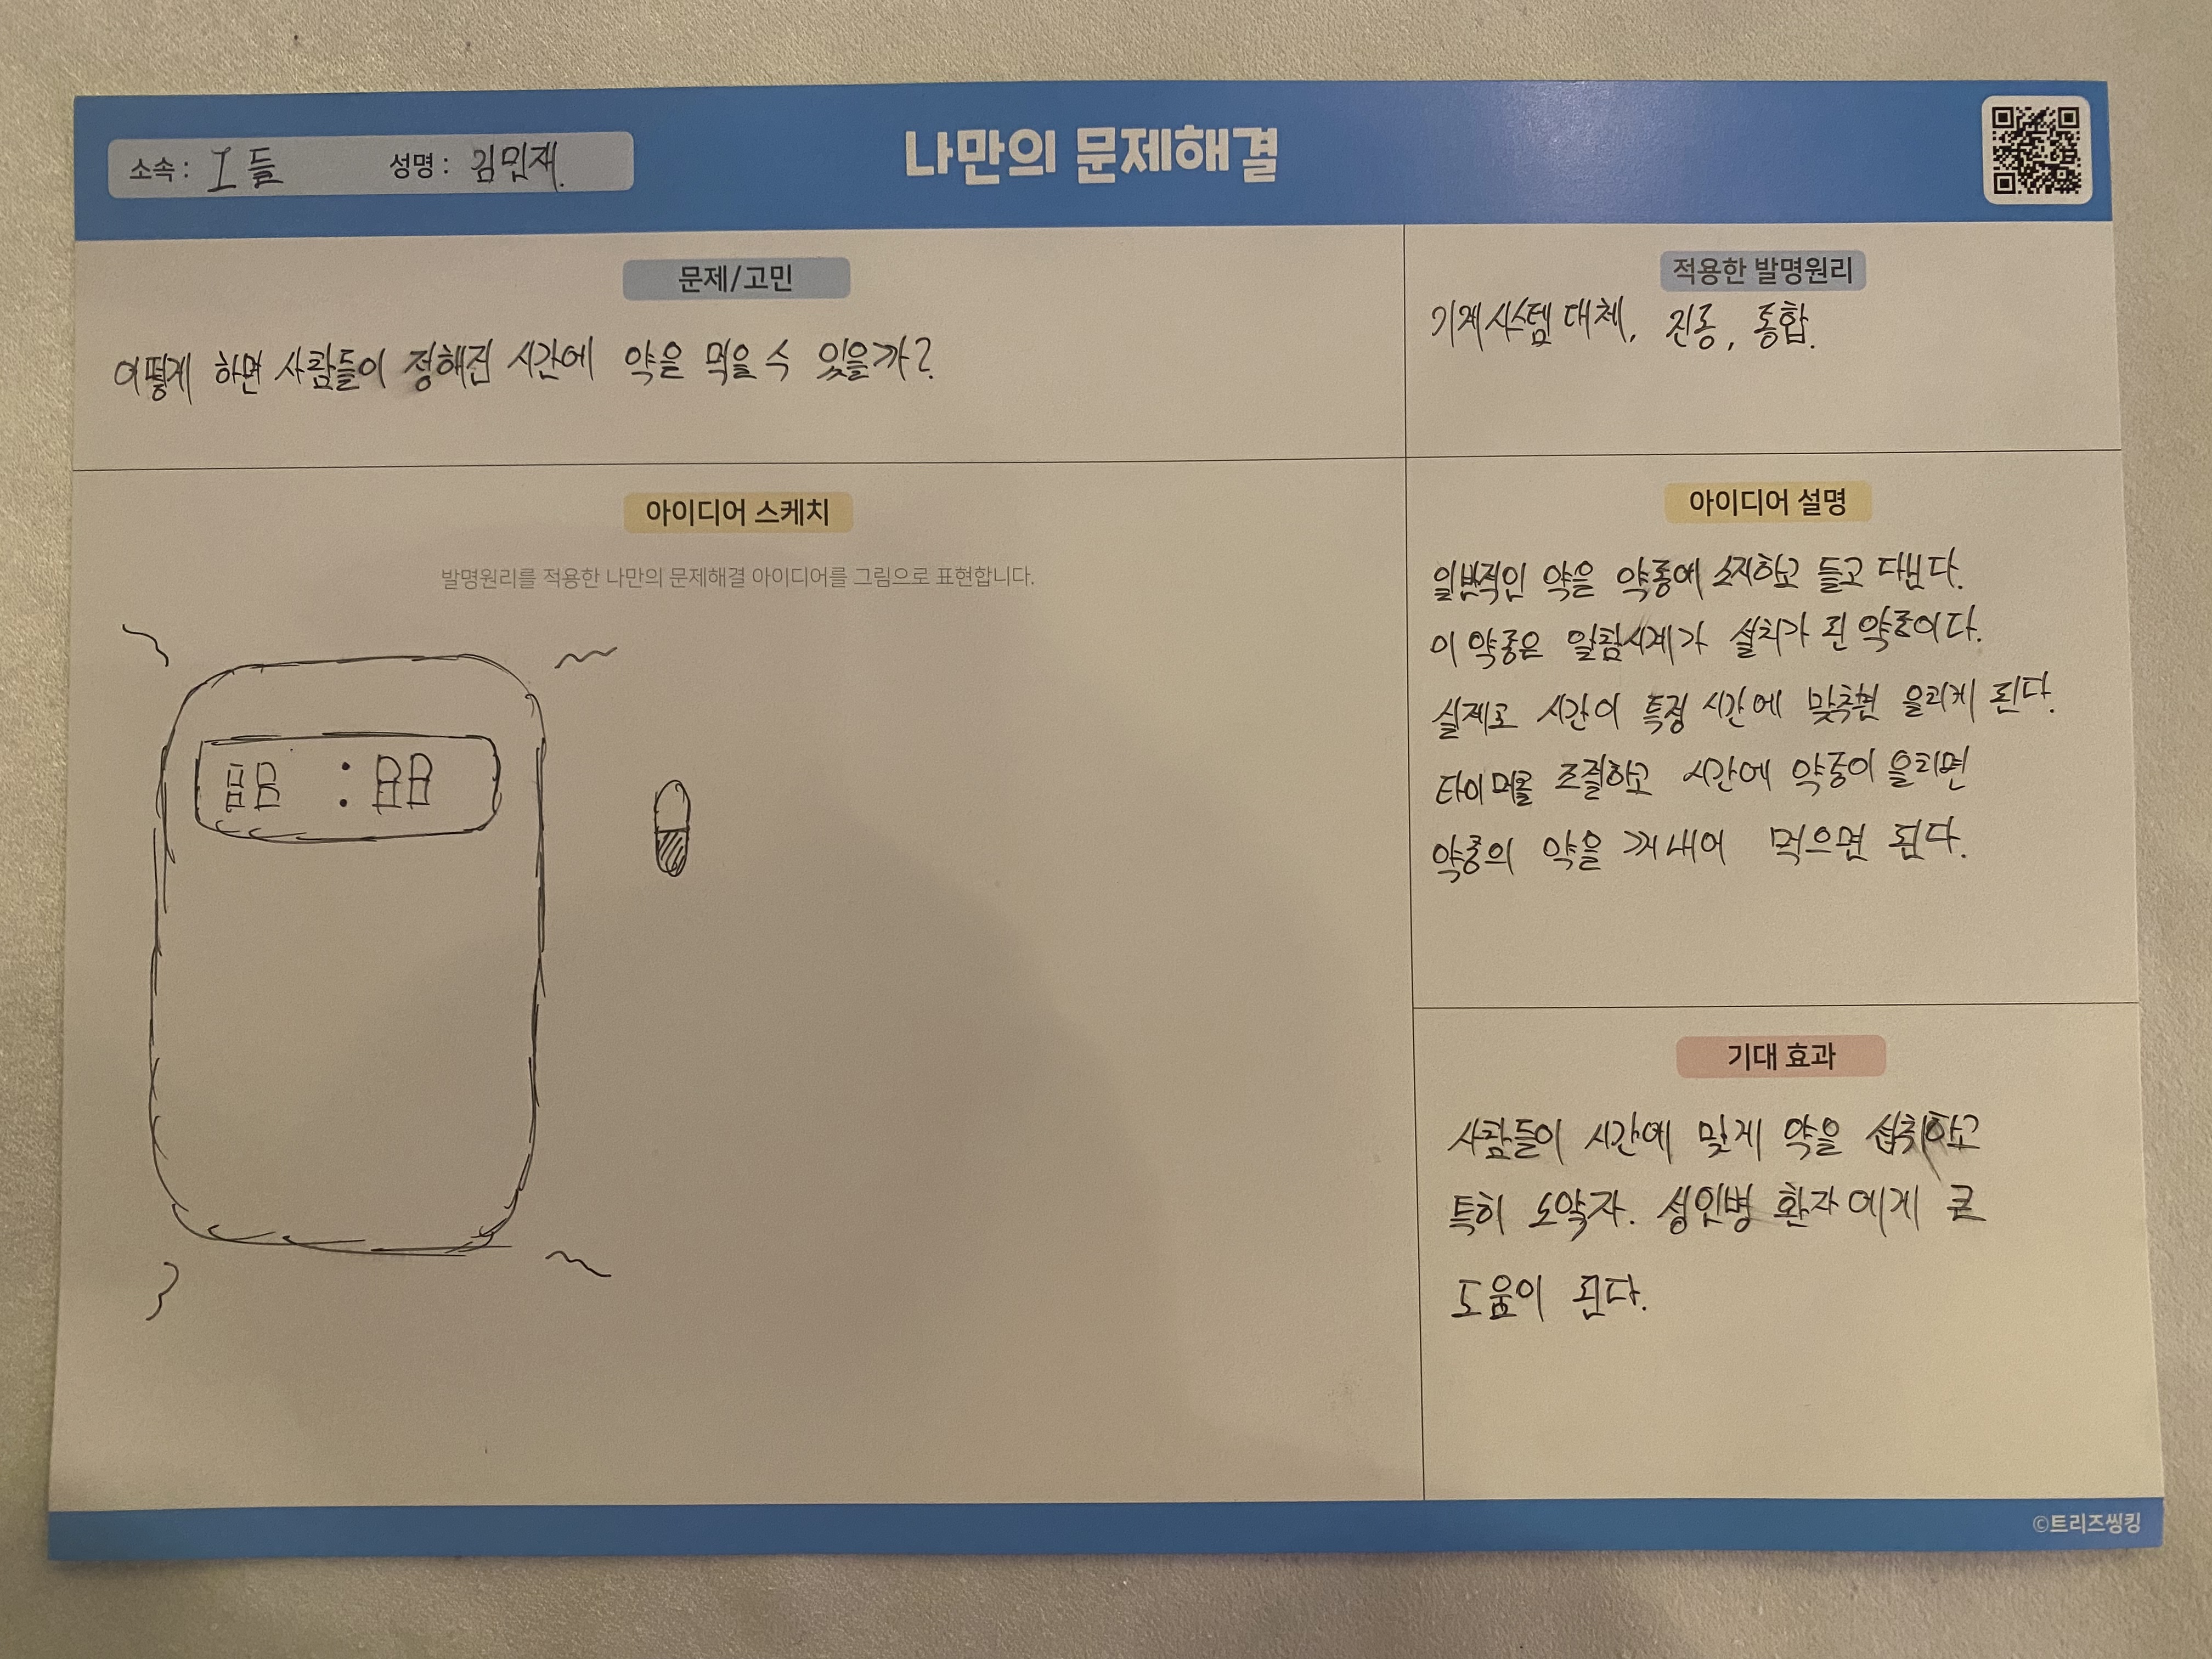 소속 : I들 성명 : 김민재.
나만의 문제해결
문제/고민
어떻게 하면 사람들이 정해진 시간에 약을 먹을 수 있을까?
적용한 발명원리
기계시스템 대체, 진동, 통합.
아이디어 스케치
발명원리를 적용한 나만의 문제해결 아이디어를 그림으로 표현합니다.
88 : 88
아이디어 설명
일반적인 약을 약통에 소지하고 들고 다닌다.
이 약통은 알람시계가 설치가 된 약통이다.
실제로 시간이 특정 시간에 맞추면 울리게 된다.
타이머를 조절하고 시간에 약통이 울리면
약통의 약을 꺼내어 먹으면 된다.
기대 효과
사람들이 시간에 맞게 약을 섭취하고
특히 노약자. 성인병 환자에게 큰
도움이 된다.
©트리즈씽킹